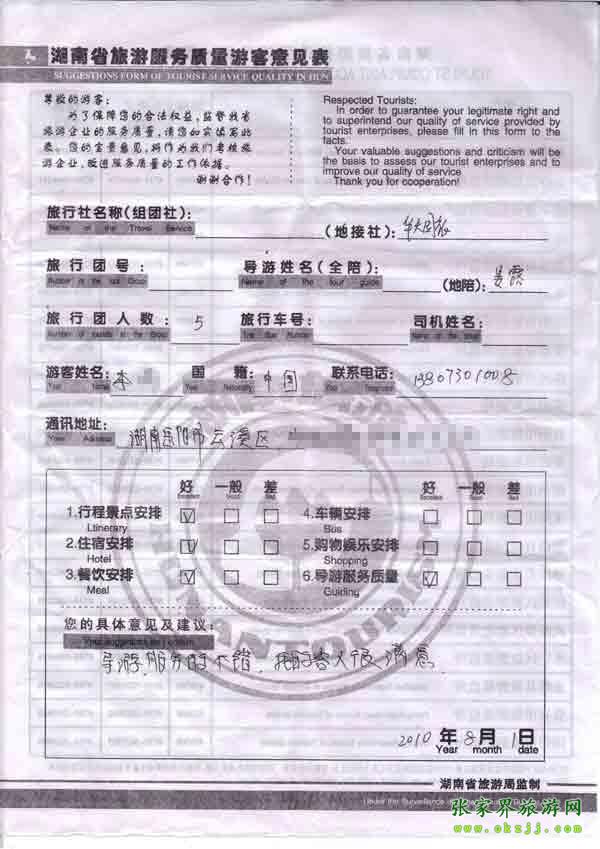 湖南省旅游服务质量游客意见表
SUGGESTIONS FORM OF TOURIST SERVICE QUALITY IN HUN
尊敬的游客:
为了保障您的合法权益,监督我省
旅游企业的服务质量,请您如实填写此
表。您的宝贵意见,将作为我们考核旅
游企业,改进服务质量的工作依据。
谢谢合作!
Respected Tourists:
In order to guarantee your legitimate right and
to superintend our quality of service provided by
tourist enterprises, please fill in this form to the
facts.
Your valuable suggestions and criticism will be
the basis to assess our tourist enterprises and to
improve our quality of service
Thank you for cooperation!
旅行社名称(组团社):
Name of the Travel Service
(地接社):
旅行团号:
导游姓名(全陪):
Name of the tour guide
(地陪): 姜露
旅行团人数: 5
旅行车号:
司机姓名:
游客姓名: 李
Your Name
国籍: 中国
Your Nationality
联系电话: 13807301008
Your Telephone
通讯地址: 湖南岳阳市云溪区
Your Address
好 一般 差 好 一般 差
Excellent Good Bad Excellent Good Bad
1.行程景点安排 ☑ □ □ 4.车辆安排 □ □ □
Ltinerary Bus
2.住宿安排 ☑ □ □ 5.购物娱乐安排 □ □ □
Hotel Shopping
3.餐饮安排 ☑ □ □ 6.导游服务质量 ☑ □ □
Meal Guiding
您的具体意见及建议:
导游服务的不错,我的客人很满意
2010 年 8 月 1 日
Year month date
湖南省旅游局监制
Under the Surveillance
张家界旅游网
www.okzjj.com